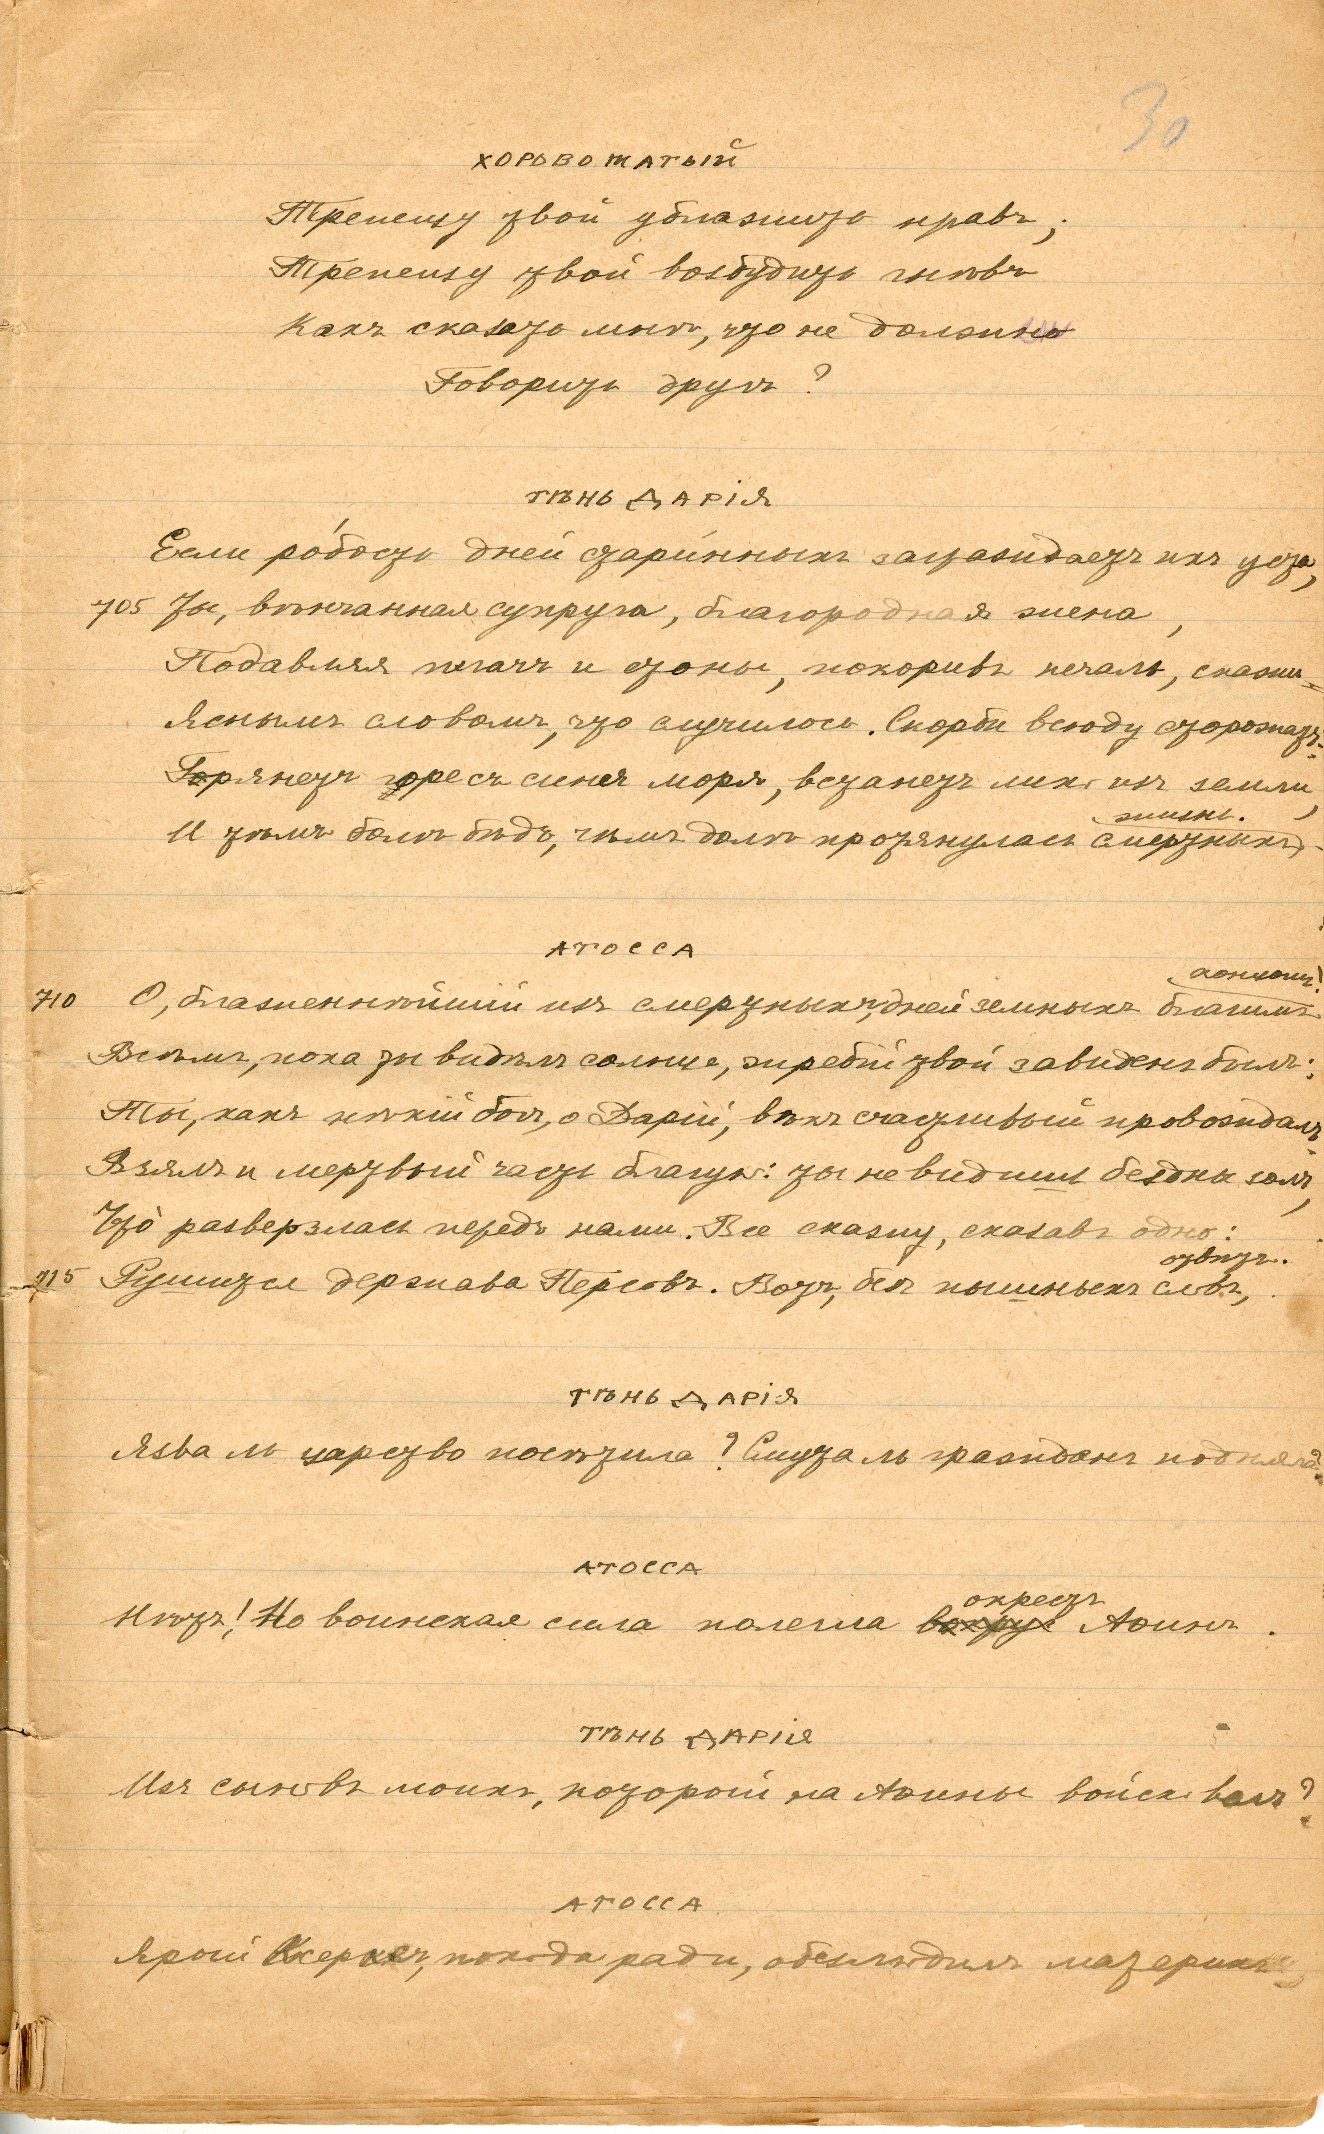 30
ХОРОВОЖАТЫЙ
Трепещу твой ублажить нравъ;
Трепещу твой возбудить гнѣвъ
Какъ сказать мнѣ, что не должно
Говорить другъ?
ТѢНЬ ДАРІЯ
Если ро́бость дней стари́нныхъ заграждаетъ имъ уста,
705 Ты, вѣнчанная супруга, благородная жена,
Подавляя плачъ и стоны, покоривъ печаль, скажи
Яснымъ словомъ, что случилось. Скорби всюду сторожатъ:
Горянетъ горе съ синя моря, встанетъ лихо изъ земли,
жизнь.
И тѣмъ болѣ бѣдъ, чѣмъ долѣ протянулась смертныхъ
АТОССА
710 О, блаженнѣйшій изъ смертныхъ, дней земныхъ благимъ
Всѣмъ, пока ты видѣлъ солнце, жребій твой завиденъ былъ:
Ты, какъ нѣкій богъ, о Дарій, вѣкъ счастливый провождалъ,
Взялъ и мертвый часть благую: ты не видишь бездны золъ,
Что̀ разверзлась передъ нами. Все скажу, сказавъ одно:
отвѣтъ.
715 Рушится держава Персовъ. Вотъ, безъ пышныхъ словъ,
ТѢНЬ ДАРІЯ
Язва ль царство посѣтила? Смута ль гражданъ подняла?
АТОССА
окрестъ
Нѣтъ! Но воинская сила полегла вокругъ Аѳинъ.
ТѢНЬ ДАРІЯ
Изъ сыновъ моихъ, который на Аѳины войско велъ?
АТОССА
Ярый Ксерксъ, похода ради, обезлюдилъ материкъ